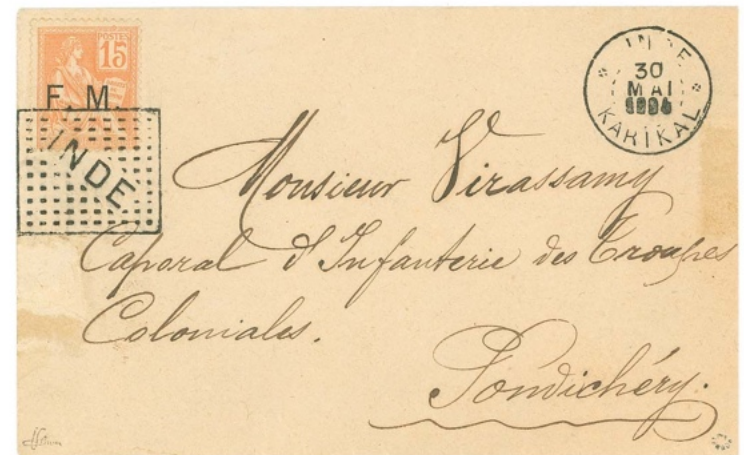 POSTES
15
F. M.
INDE
INDE
30
MAI
KARIKAL
Monsieur Virassamy
Caporal d'Infanterie des Troupes
Coloniales.
Pondichéry.